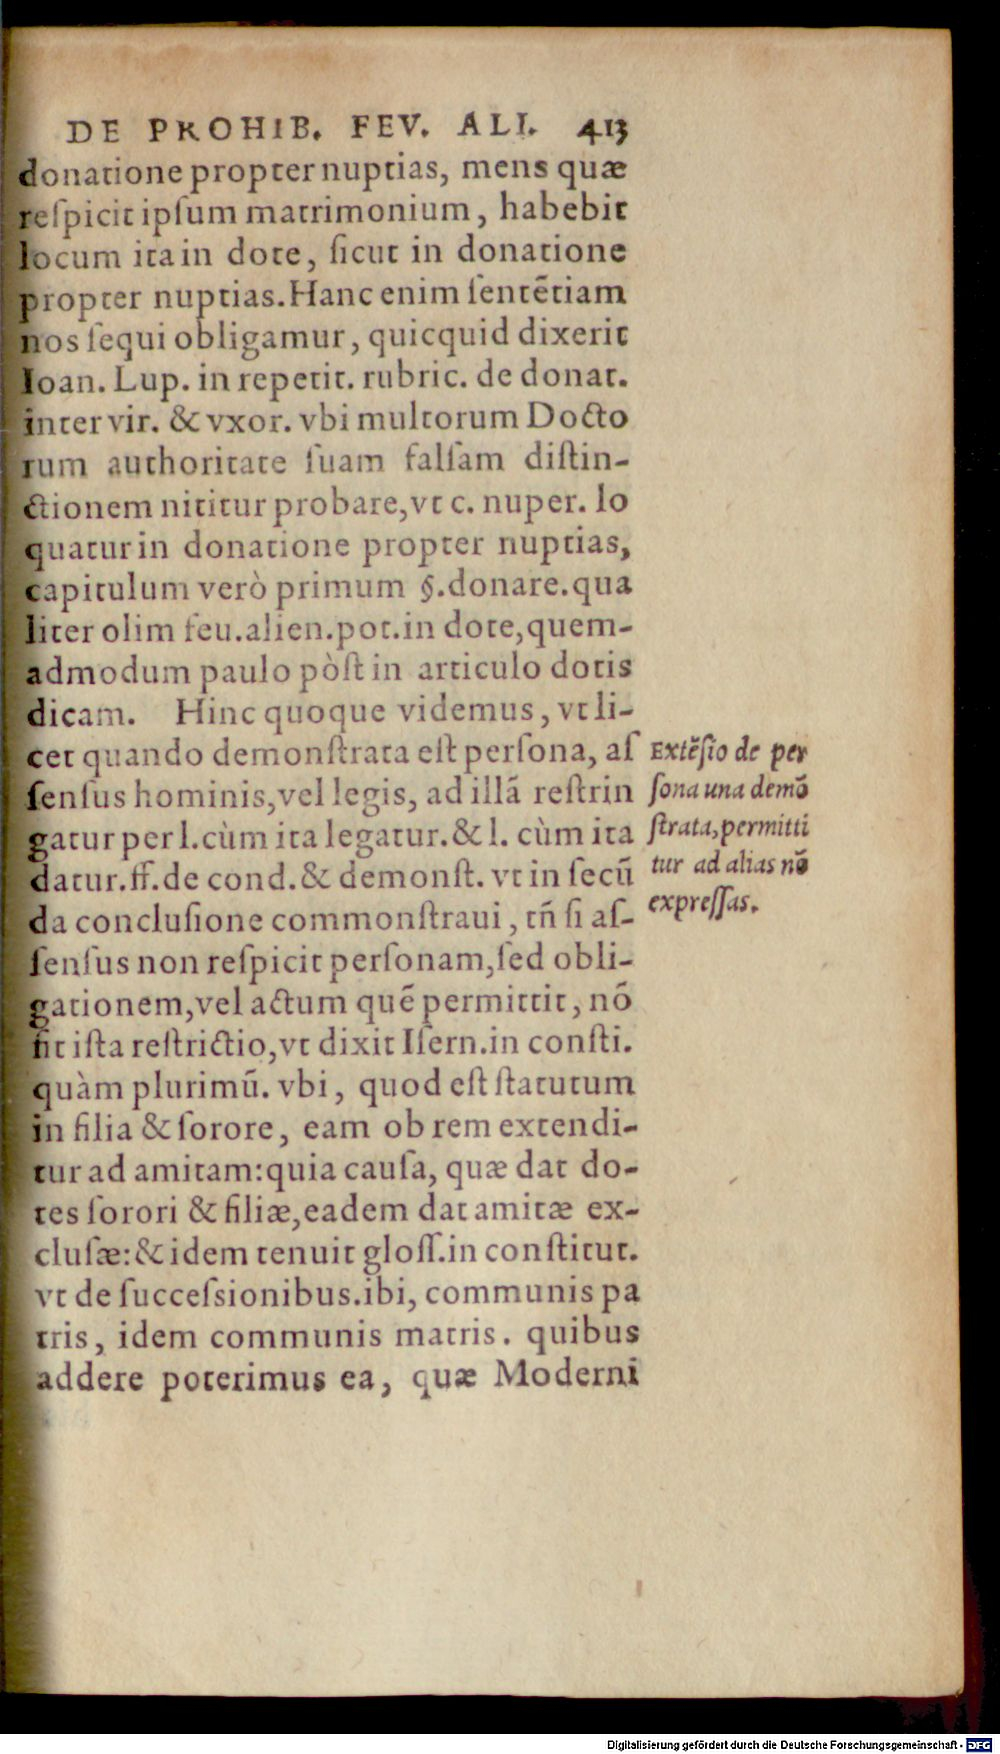 DE PROHIB. FEV. ALI. 413
donatione propter nuptias, mens quæ
reſpicit ipſum matrimonium, habebit
locum ita in dote, ſicut in donatione
propter nuptias. Hanc enim ſentẽtiam
nos ſequi obligamur, quicquid dixerit
Ioan. Lup. in repetit. rubric. de donat.
inter vir. & vxor. vbi multorum Docto
rum authoritate ſuam falſam diſtin-
ctionem nititur probare, vt c. nuper. lo
quatur in donatione propter nuptias,
capitulum verò primum §. donare. qua
liter olim feu. alien. pot. in dote, quem-
admodum paulo pòſt in articulo dotis
dicam. Hinc quoque videmus, vt li-
cet quando demonſtrata eſt perſona, aſ
ſenſus hominis, vel legis, ad illã reſtrin
gatur per l. cùm ita legatur. & l. cùm ita
datur. ff. de cond. & demonſt. vt in ſecũ
da concluſione commonſtraui, tñ ſi aſ-
ſenſus non reſpicit perſonam, ſed obli-
gationem, vel actum quẽ permittit, nõ
fit iſta reſtrictio, vt dixit Iſern. in conſti.
quàm plurimũ. vbi, quod eſt ſtatutum
in filia & ſorore, eam ob rem extendi-
tur ad amitam: quia cauſa, quæ dat do-
tes ſorori & filiæ, eadem dat amitæ ex-
cluſæ: & idem tenuit gloſſ. in conſtitut.
vt de ſucceſsionibus. ibi, communis pa
tris, idem communis matris. quibus
addere poterimus ea, quæ Moderni
Extẽſio de per
ſona una demõ
ſtrata, permitti
tur ad alias nõ
expreſſas.
Digitalisierung gefördert durch die Deutsche Forschungsgemeinschaft - DFG